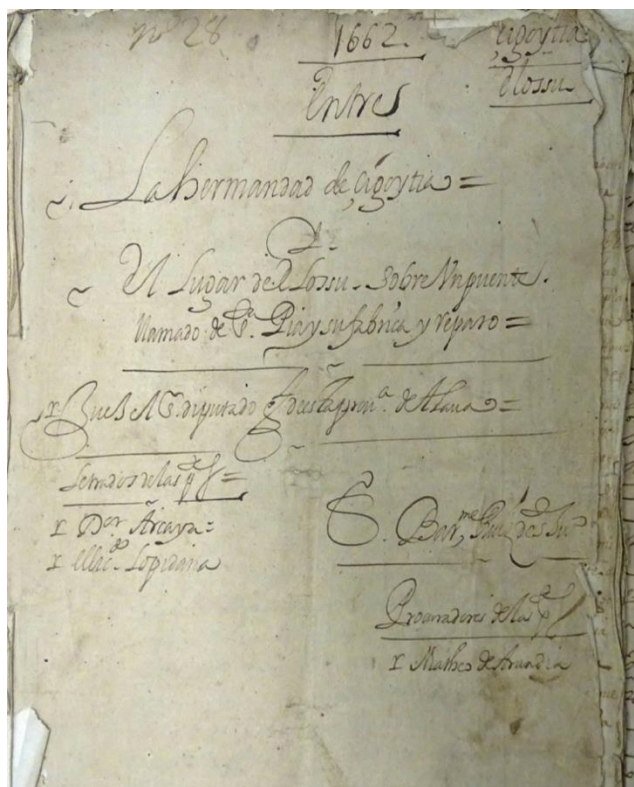 nº 28
1662.
Çigoytia
Olossu
Entres
La hermandad de çigoytia =
Y.
El Lugar de Olossu. Sobre Un puente.
llamado de Sta. Pia y su fabrica y reparo =
Juez el S. diputado Gl. desta prova. de Alava =
Letrados de las ptes =
Dor. Arcaya =
ellicdo. Lopidana
S. Barme. Ruiz de
Procuradores de las ptes
Matheo de Arandia